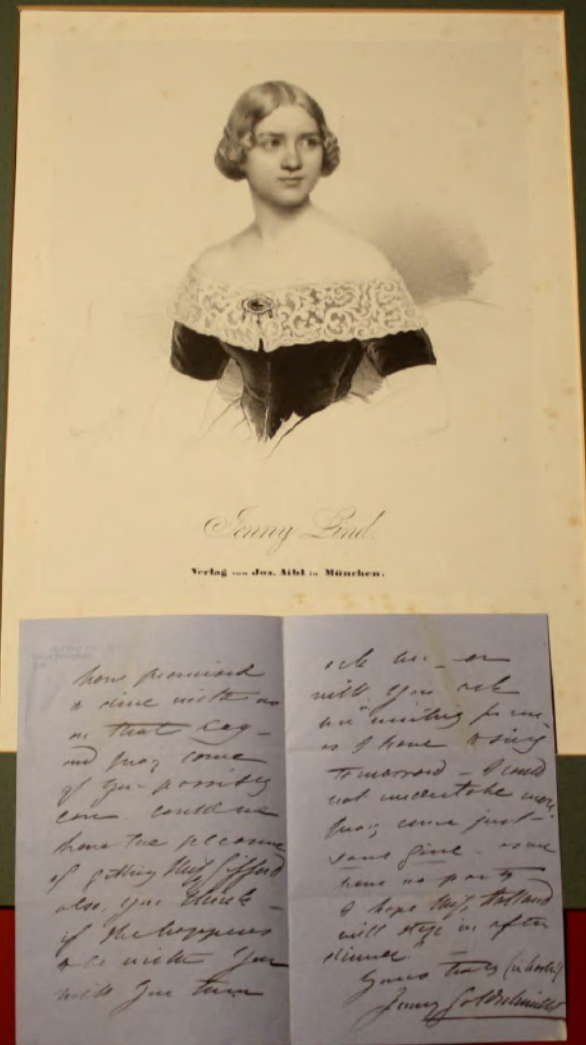 Jenny Lind.
Verlag von Jos. Aibl in München.
have promised
to dine with us
on that day –
and pray come
if you possibly
can. Could we
have the pleasure
of getting Miss Gifford
also, you think –
if she happens
to be with you
will you then
ask her – or
will you ask
her
as I have to sing
tomorrow – I could
not undertake more
pray come just –
sans gêne – as we
have no party –
I hope Miss
will step in after
dinner.
Yours truly (in haste)
Jenny Goldschmidt